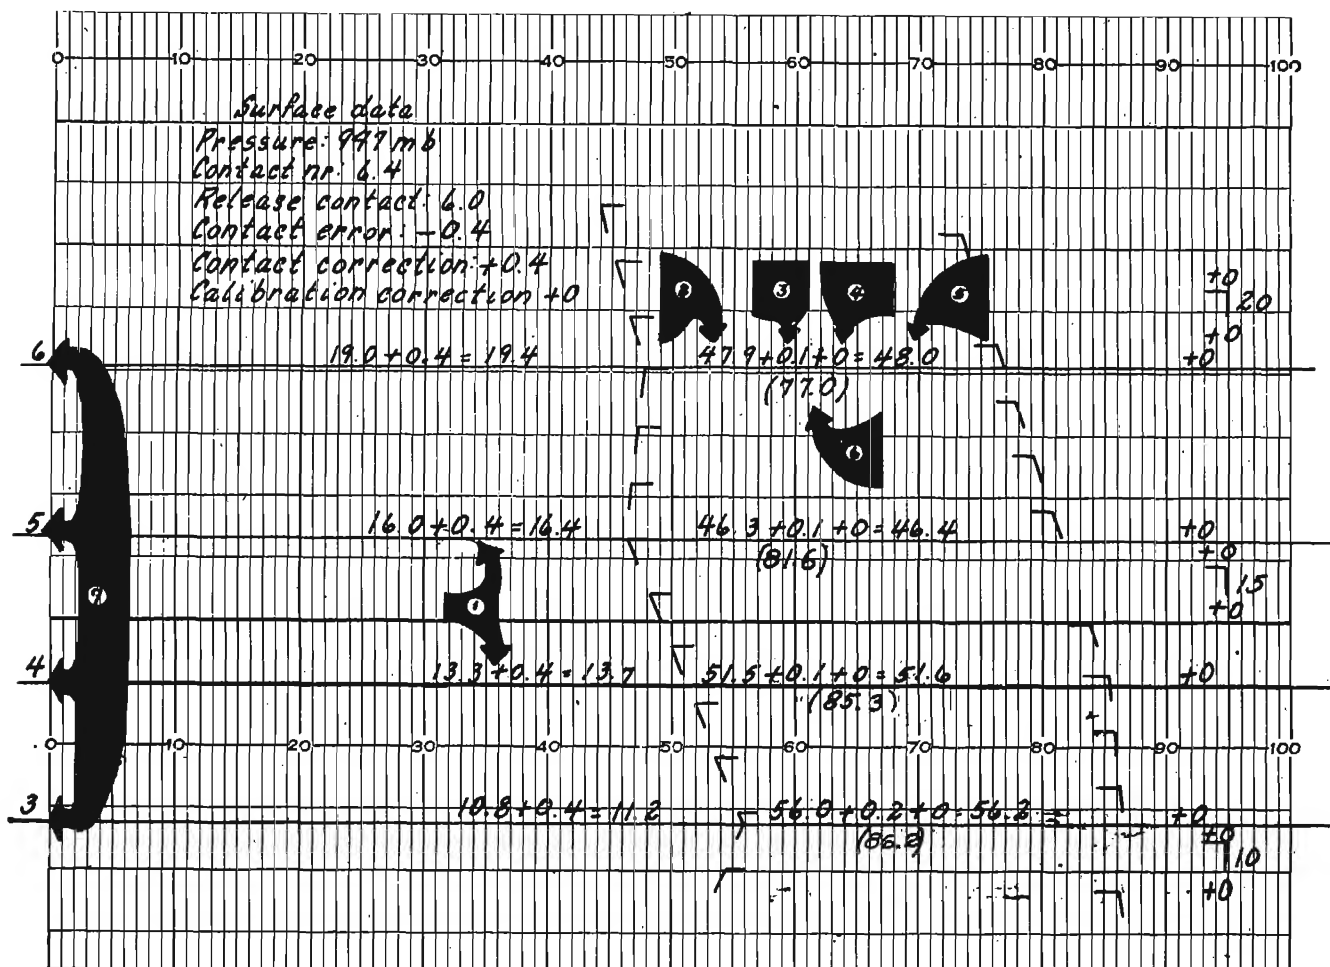 0 10 20 30 40 50 60 70 80 90 100
Surface data
Pressure: 947 mb
Contact nr: 6.4
Release contact: 6.0
Contact error: -0.4
Contact correction: +0.4
Calibration correction +0
2 3 4 5
+0
20
+0
6 19.0+0.4=19.4 47.9+0.1+0=48.0 +0
(77.0)
6
5 16.0+0.4=16.4 46.3+0.1+0=46.4 +0
(81.6) +0
15
9 1 +0
4 13.3+0.4=13.7 51.5+0.1+0=51.6 +0
(85.3)
0 10 20 30 40 50 60 70 80 90 100
3 10.8+0.4=11.2 56.0+0.2+0=56.2 +0
(86.2) +0
10
+0